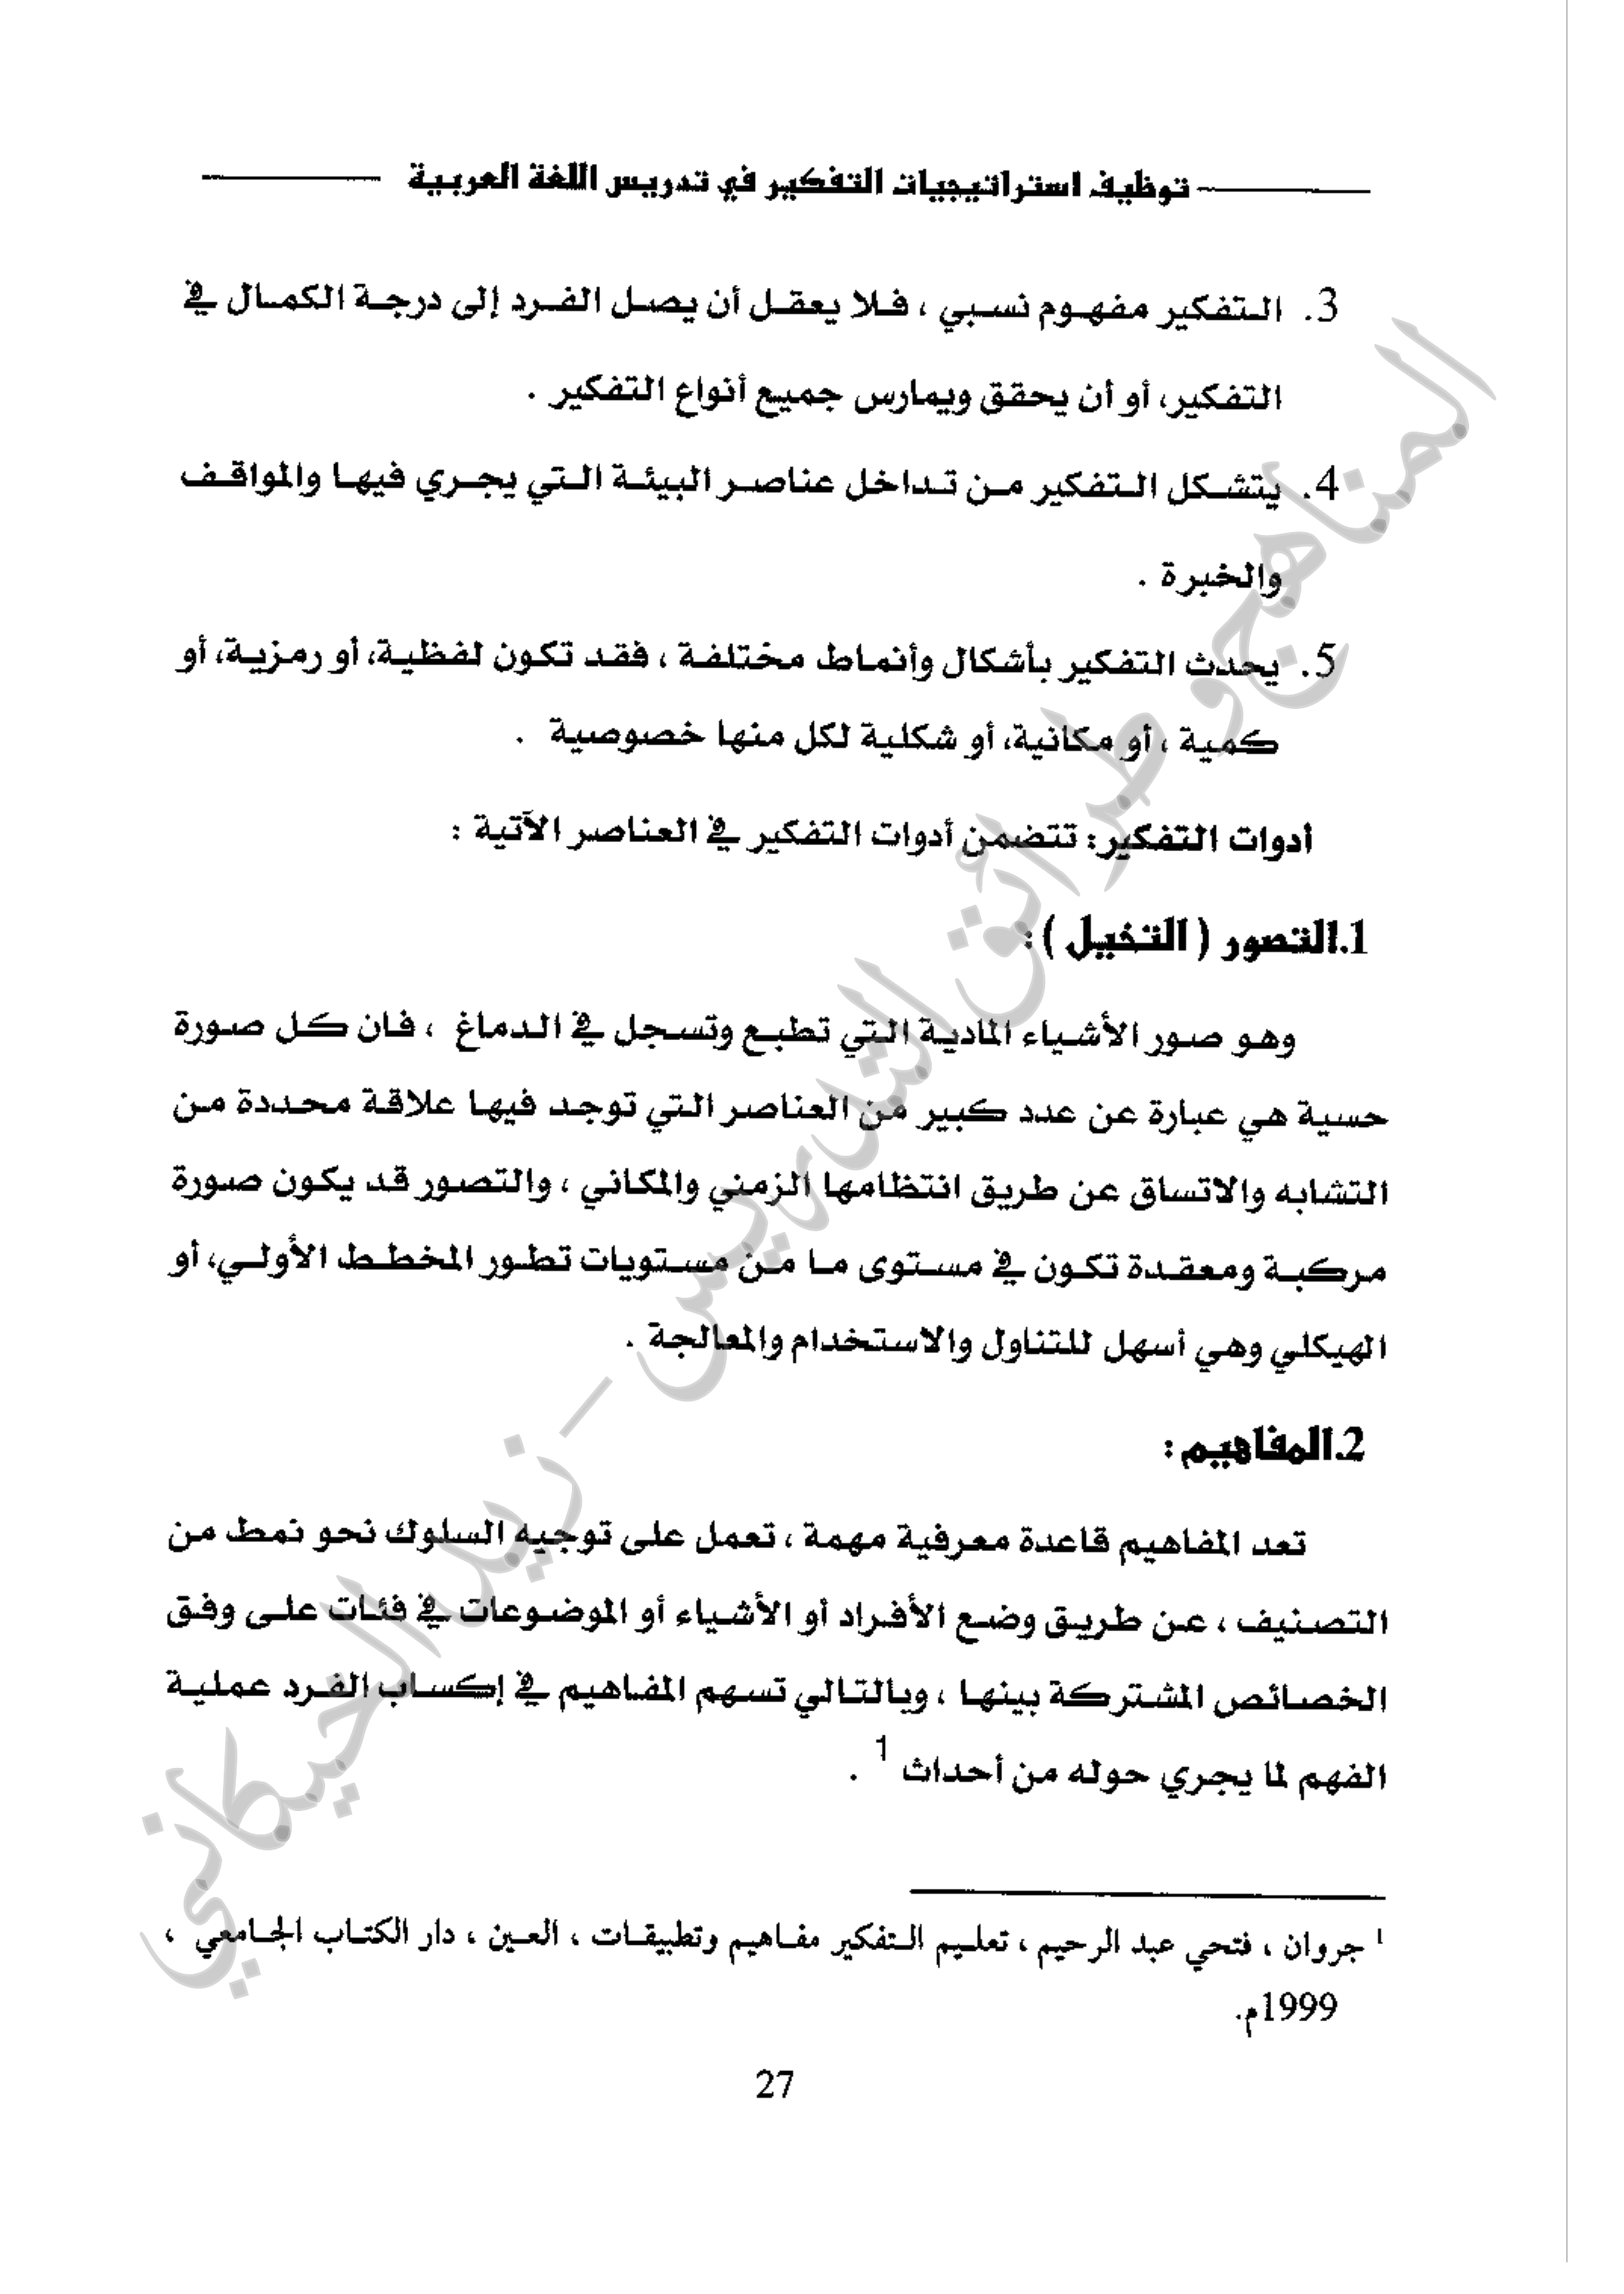 توظيف استراتيجيات التفكير في تدريس اللغة العربية
3. التفكير مفهوم نسبي ، فلا يعقل أن يصل الفرد إلى درجة الكمال في
التفكير، أو أن يحقق ويمارس جميع أنواع التفكير .
4. يتشكل التفكير من تداخل عناصر البيئة التي يجري فيها والمواقف
والخبرة .
5. يحدث التفكير بأشكال وأنماط مختلفة ، فقد تكون لفظية، أو رمزية، أو
كمية ، أو مكانية، أو شكلية لكل منها خصوصية .
أدوات التفكير: تتضمن أدوات التفكير في العناصر الآتية :
1.التصور ( التخييل ) :
وهو صور الأشياء المادية التي تطبع وتسجل في الدماغ ، فان كل صورة
حسية هي عبارة عن عدد كبير من العناصر التي توجد فيها علاقة محددة من
التشابه والاتساق عن طريق انتظامها الزمني والمكاني ، والتصور قد يكون صورة
مركبة ومعقدة تكون في مستوى ما من مستويات تطور المخطط الأولي، أو
الهيكلي وهي أسهل للتناول والاستخدام والمعالجة .
2.المفاهيم :
تعد المفاهيم قاعدة معرفية مهمة ، تعمل على توجيه السلوك نحو نمط من
التصنيف ، عن طريق وضع الأفراد أو الأشياء أو الموضوعات في فئات على وفق
الخصائص المشتركة بينها ، وبالتالي تسهم المفاهيم في إكساب الفرد عملية
الفهم لما يجري حوله من أحداث 1 .
1 جروان ، فتحي عبد الرحيم ، تعليم التفكير مفاهيم وتطبيقات ، العين ، دار الكتاب الجامعي ،
1999م.
27
المناهج وطرائق التدريس - زيد الخيكاني